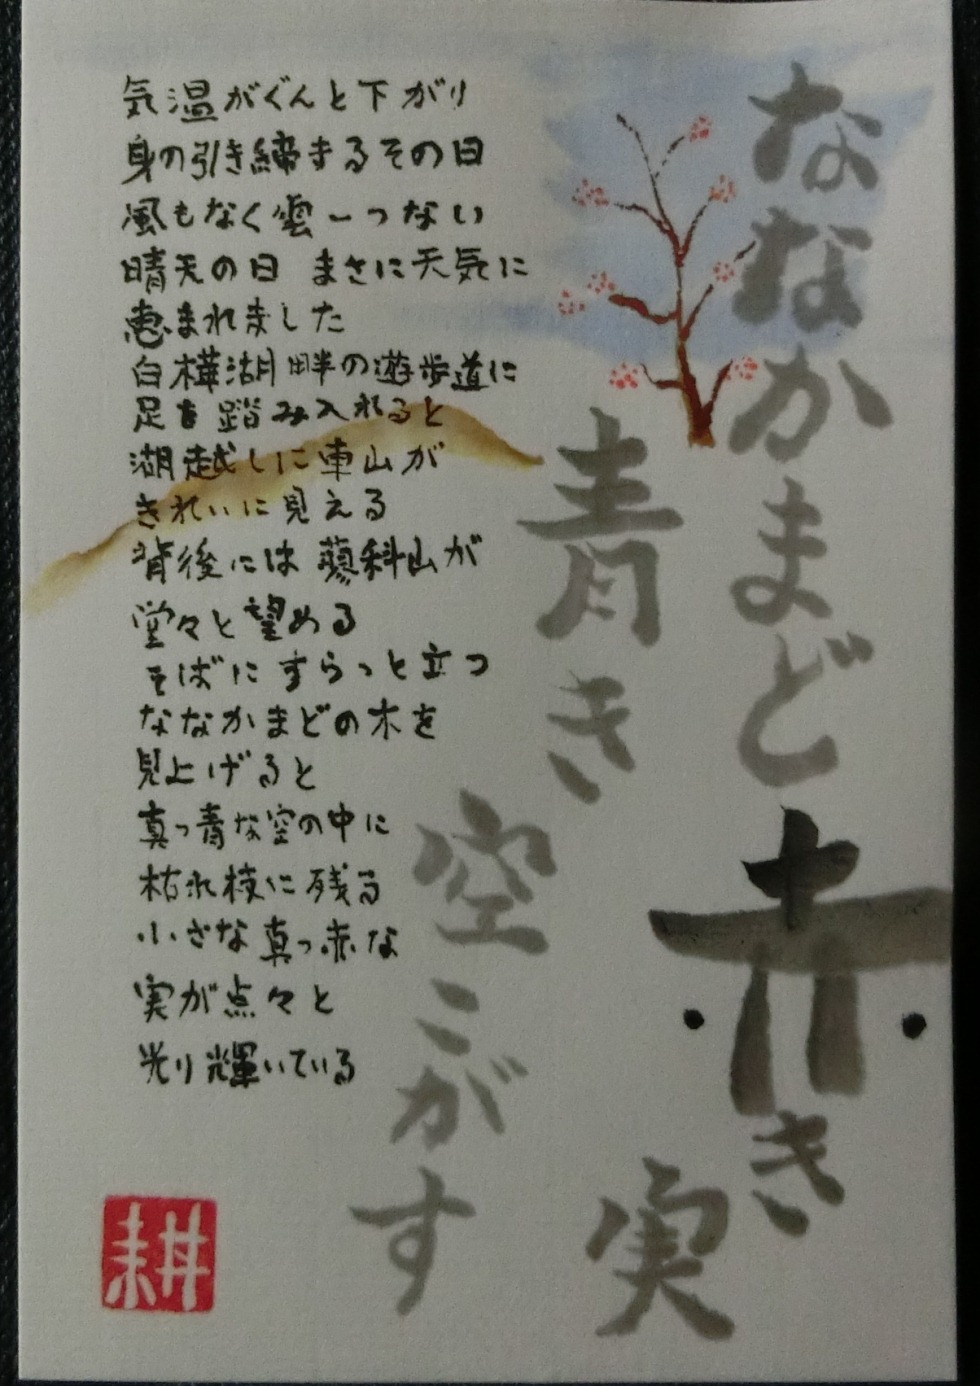 ななかまど赤き実
青き空こがす
気温がぐんと下がり
身の引き締まるその日
風もなく雲一つない
晴天の日 まさに天気に
恵まれました
白樺湖畔の遊歩道に
足を踏み入れると
湖越しに車山が
きれいに見える
背後には蓼科山が
堂々と望める
そばにすらっと立つ
ななかまどの木を
見上げると
真っ青な空の中に
枯れ枝に残る
小さな真っ赤な
実が点々と
光り輝いている
耕